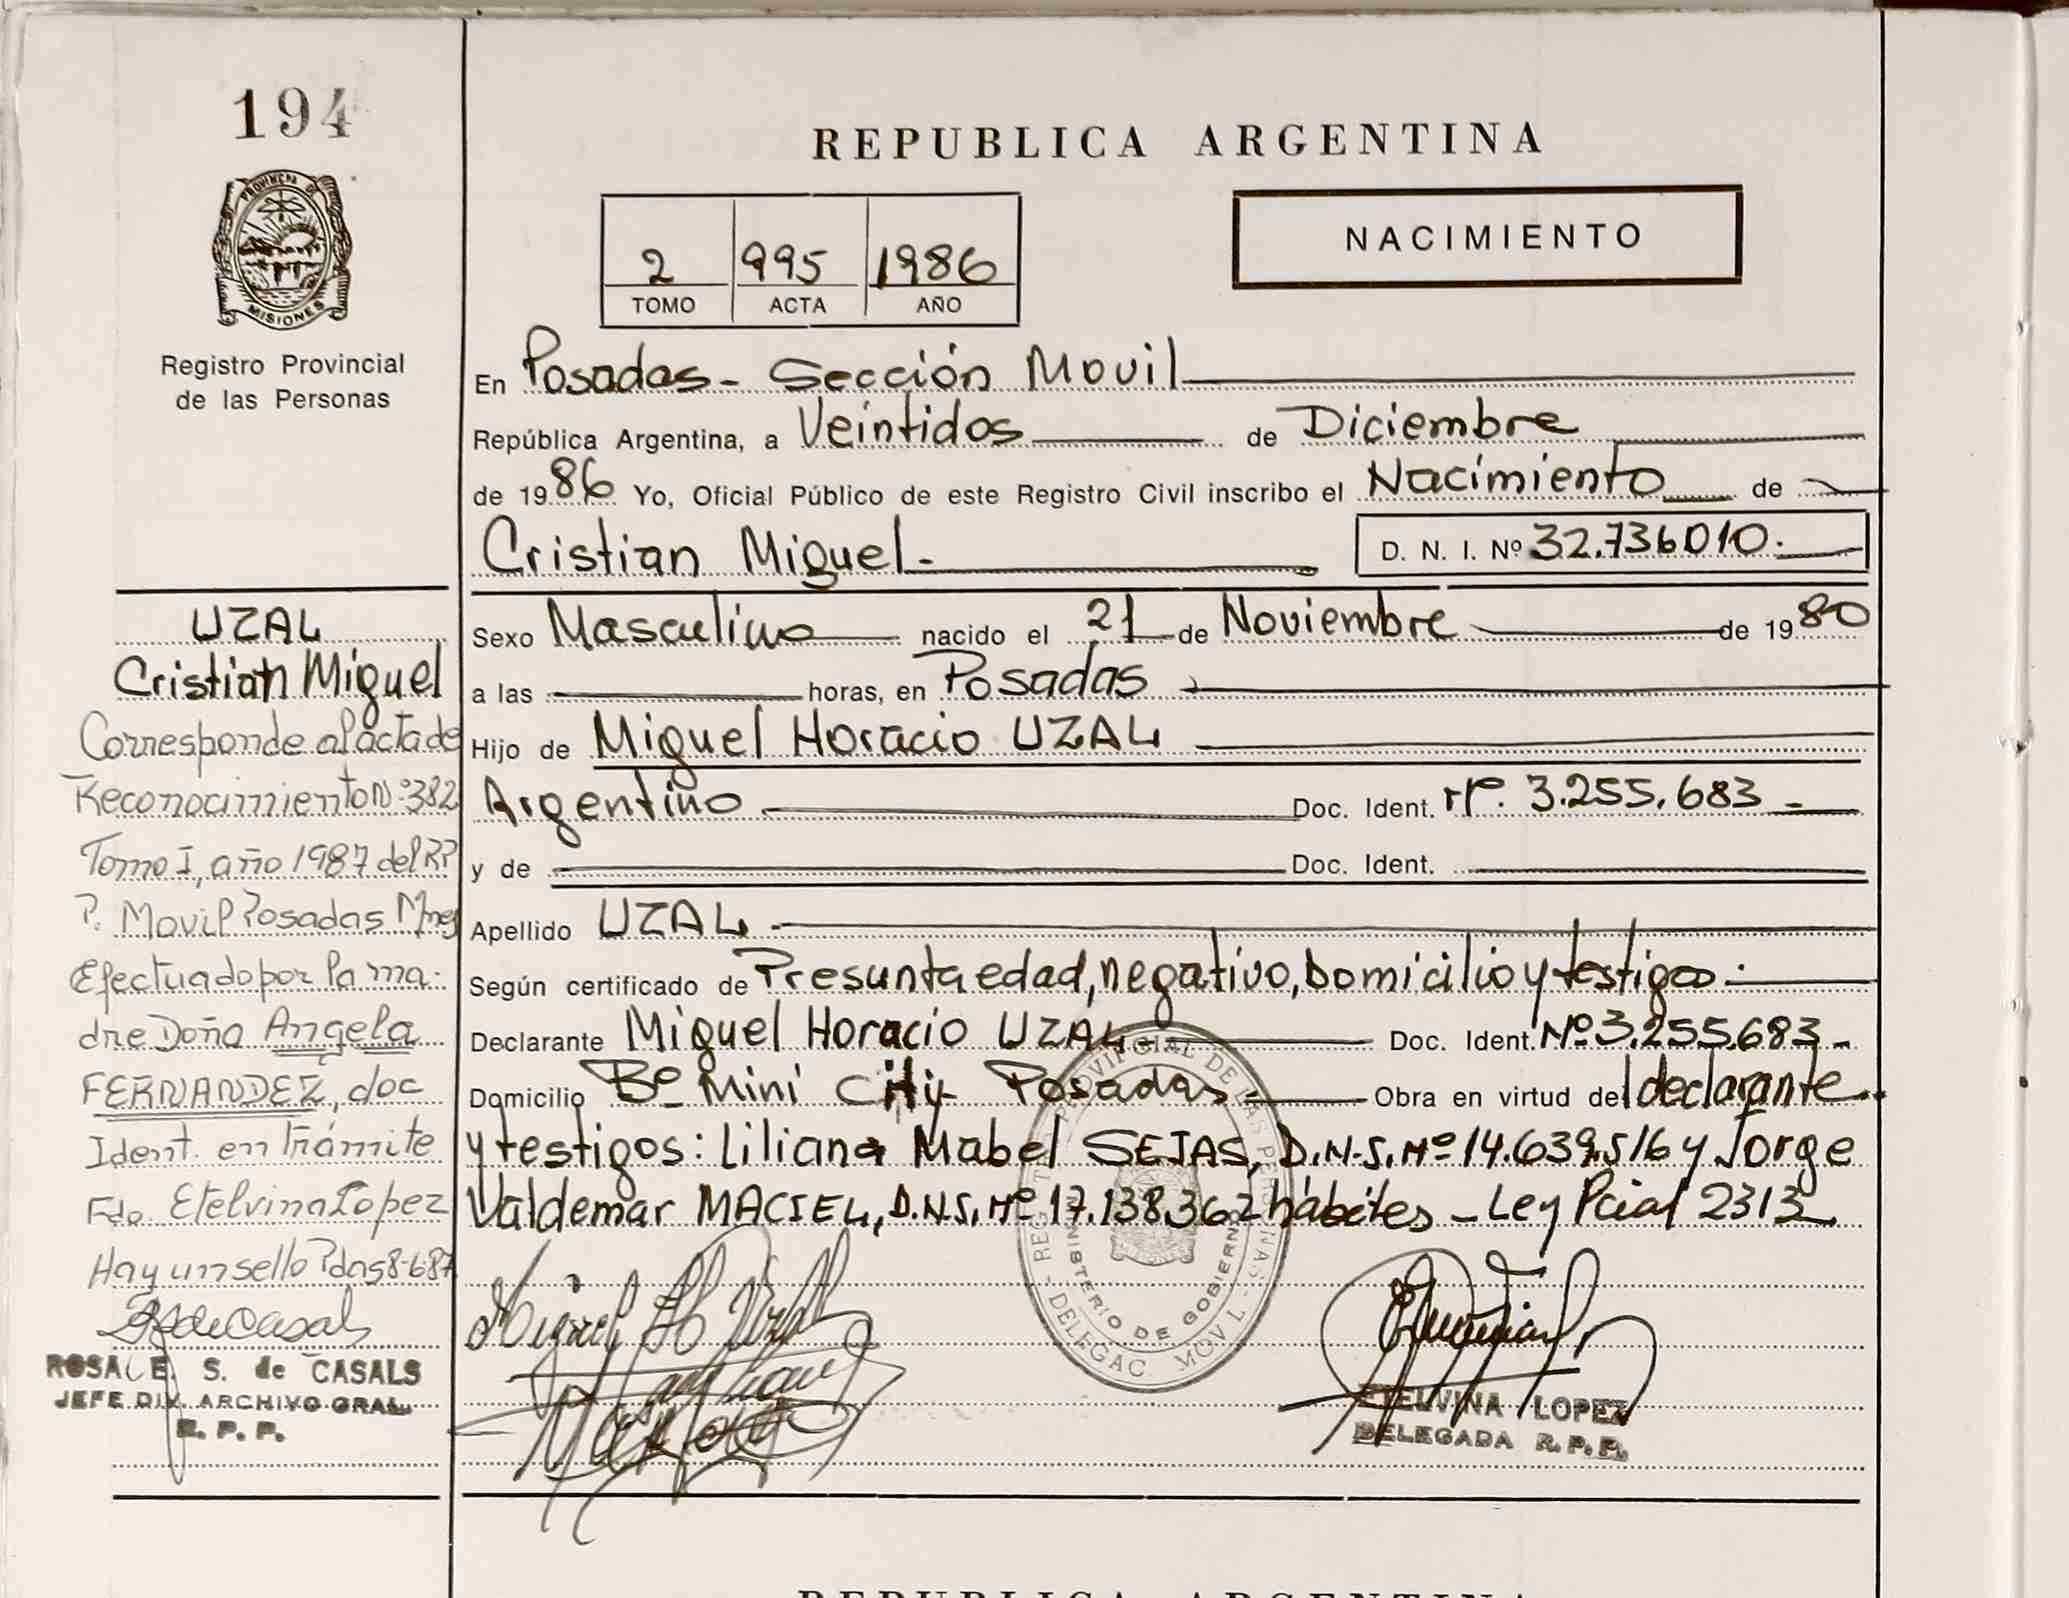 194
PROVINCIA DE
MISIONES
Registro Provincial
de las Personas
REPUBLICA ARGENTINA
2 995 1986
TOMO ACTA AÑO
NACIMIENTO
En Posadas - Sección Movil
República Argentina, a Veintidos de Diciembre
de 1986 Yo, Oficial Público de este Registro Civil inscribo el Nacimiento de
Cristian Miguel.- D. N. I. Nº 32.736010.
Sexo Masculino nacido el 21 de Noviembre de 1980
a las horas, en Posadas
Hijo de Miguel Horacio UZAL
Argentino Doc. Ident. Nº. 3.255.683 -
y de Doc. Ident.
Apellido UZAL
Según certificado de Presunta edad, negativo, domicilio y testigos.
Declarante Miguel Horacio UZAL Doc. Ident. Nº 3.255.683 -
Domicilio Bº Mini City Posadas Obra en virtud del declarante
y testigos: Liliana Mabel SEJAS, D.N.I. Nº 14.639.516 y Jorge
Valdemar MACIEL, D.N.I. Nº 17.138.362 hábiles - Ley Pcial 2313
UZAL
Cristian Miguel
Corresponde al acta de
Reconocimiento Nº 382
Tomo I, año 1987 del R.P.
P. Movil Posadas Mnes
Efectuado por la ma-
dre Doña Angela
FERNANDEZ, doc
Ident. en trámite
Fdo. Etelvina Lopez
Hay un sello Pdas 8-6-87
ROSA E. S. de CASALS
JEFE DIV. ARCHIVO GRAL.
R. P. P.
MINISTERIO DE GOBIERNO
ETELVINA LOPEZ
DELEGADA R. P. P.
REPUBLICA ARGENTINA